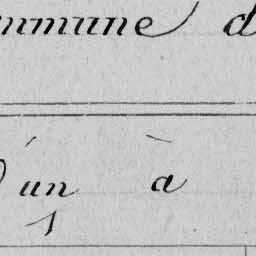 mmune d
un à
1